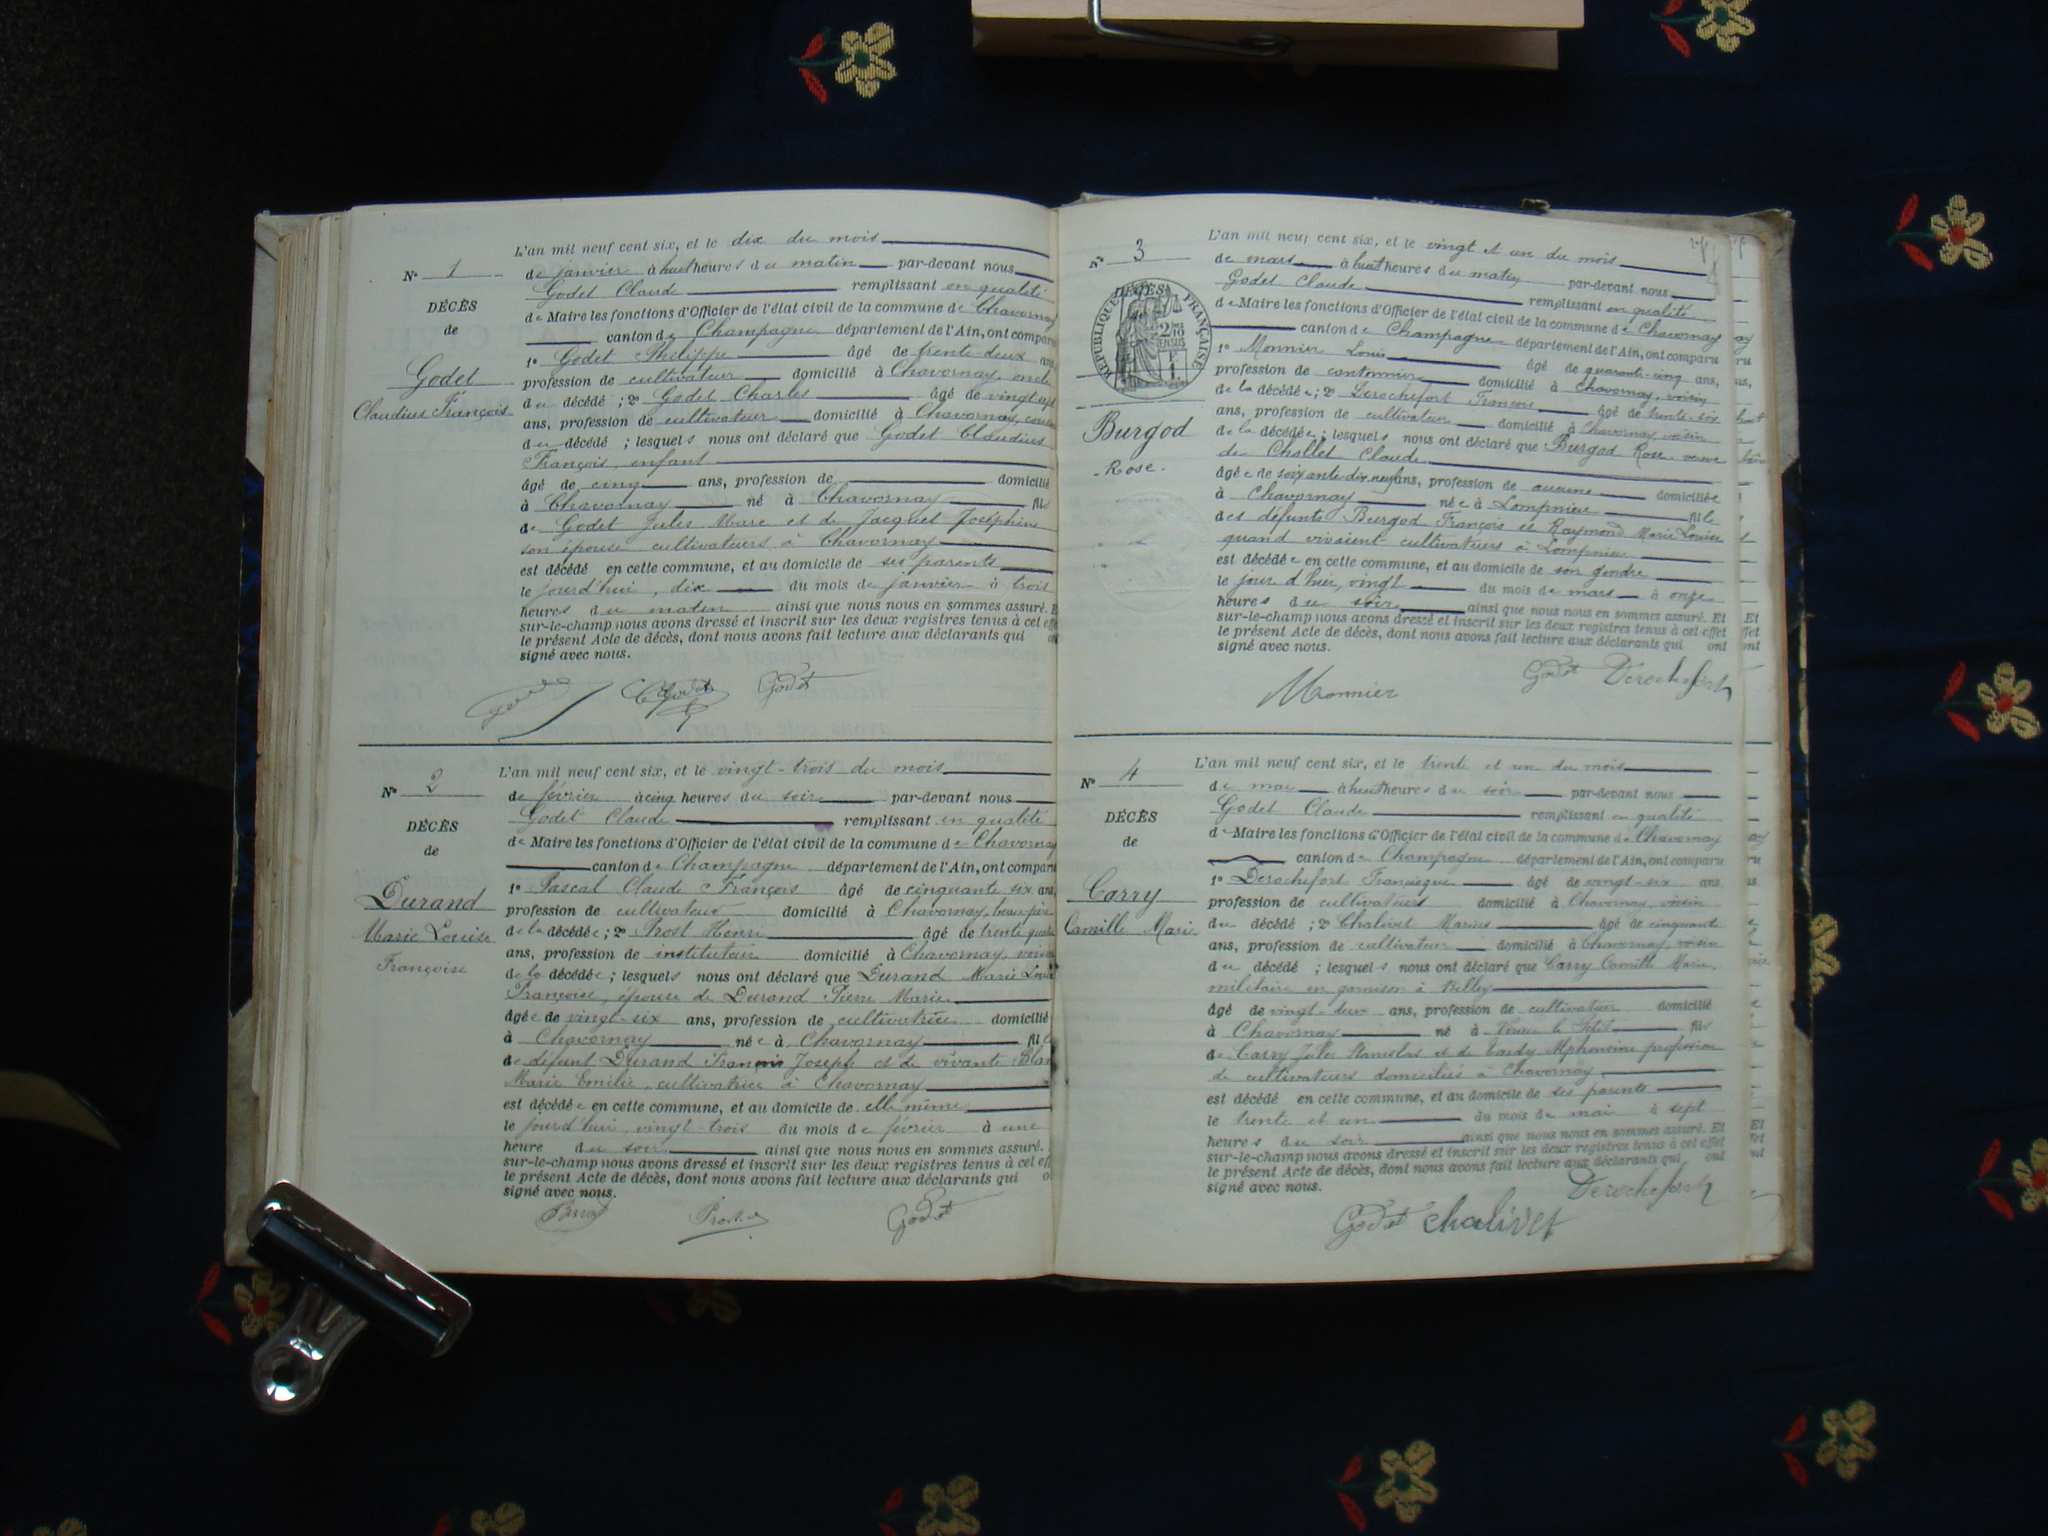 L'an mil neuf cent six, et le dix du mois
N° 1
de janvier à huit heures du matin par-devant nous
Godet Claude remplissant en qualité
DÉCÈS
de Maire les fonctions d'Officier de l'état civil de la commune de Chavornay
de
canton de Champagne département de l'Ain, ont comparu
1° Godet Philippe âgé de trente-deux ans,
Godet
profession de cultivateur domicilié à Chavornay, oncle
Claudius François
du décédé ; 2° Godet Charles âgé de vingt sept
ans, profession de cultivateur domicilié à Chavornay, cousin
du décédé ; lesquels nous ont déclaré que Godet Claudius
François, enfant
âgé de cinq ans, profession de domicilié
à Chavornay né à Chavornay fils
de Godet Jules Marc et de Jacquet Joséphine
son épouse cultivateurs à Chavornay
est décédé en cette commune, et au domicile de ses parents
le jourd'hui, dix du mois de janvier à trois
heures du matin ainsi que nous nous en sommes assuré. E
sur-le-champ nous avons dressé et inscrit sur les deux registres tenus à cet eff
le présent Acte de décès, dont nous avons fait lecture aux déclarants qui on
signé avec nous.
C Godet Godet
L'an mil neuf cent six, et le vingt-trois du mois
N° 2
de février à cinq heures du soir par-devant nous
Godet Claude remplissant en qualité
DÉCÈS
de Maire les fonctions d'Officier de l'état civil de la commune de Chavornay
de
canton de Champagne département de l'Ain, ont comparu
1° Pascal Claude François âgé de cinquante six ans,
Durand
profession de cultivateur domicilié à Chavornay, beau père
Marie Louise
de la décédée ; 2° Prost Henri âgé de trente quatre
Françoise
ans, profession de instituteur domicilié à Chavornay, voisin
de la décédée ; lesquels nous ont déclaré que Durand Marie Louise
Françoise, épouse de Durand Pierre Marie
âgée de vingt-six ans, profession de cultivatrice domicilié
à Chavornay née à Chavornay fille
de défunt Durand François Joseph et de vivante Blan
Marie Emilie, cultivatrice à Chavornay
est décédée en cette commune, et au domicile de elle même
le jourd'hui, vingt-trois du mois de février à une
heure du soir ainsi que nous nous en sommes assuré.
sur-le-champ nous avons dressé et inscrit sur les deux registres tenus à cet eff
le présent Acte de décès, dont nous avons fait lecture aux déclarants qui o
signé avec nous.
Prost Godet
L'an mil neuf cent six, et le vingt et un du mois
N° 3
de mars à huit heures du matin par-devant nous
Godet Claude remplissant en qualité
DÉCÈS
RÉPUBLIQUE FRANÇAISE
2/10 EN SUS
F. 1.
de Maire les fonctions d'Officier de l'état civil de la commune de Chavornay
canton de Champagne département de l'Ain, ont comparu
1° Monnier Louis âgé de quarante-cinq ans,
profession de cantonnier domicilié à Chavornay, voisin
de la décédée ; 2° Derochefort François âgé de trente-six
ans, profession de cultivateur domicilié à Chavornay, voisin
Burgod
Rose.
de la décédée ; lesquels nous ont déclaré que Burgod Rose veuve
de Chollet Claude
âgée de soixante dix neuf ans, profession de aucune domiciliée
à Chavornay née à Lompnieu fille
des défunts Burgod François et Raymond Marie Louise
quand vivaient cultivateurs à Lompnieu
est décédée en cette commune, et au domicile de son gendre
le jour d'hier, vingt du mois de mars à onze
heures du soir ainsi que nous nous en sommes assuré. Et
sur-le-champ nous avons dressé et inscrit sur les deux registres tenus à cet effet
le présent Acte de décès, dont nous avons fait lecture aux déclarants qui ont
signé avec nous.
Monnier Godet Derochefort
L'an mil neuf cent six, et le trente et un du mois
N° 4
de mai à huit heures du soir par-devant nous
Godet Claude remplissant en qualité
DÉCÈS
de Maire les fonctions d'Officier de l'état civil de la commune de Chavornay
de
canton de Champagne département de l'Ain, ont comparu
1° Derochefort Francisque âgé de vingt-six ans
Carry
profession de cultivateurs domicilié à Chavornay, voisin
Camille Marie
du décédé ; 2° Chalivet Marius âgé de cinquante
ans, profession de cultivateur domicilié à Chavornay, voisin
du décédé ; lesquels nous ont déclaré que Carry Camille Marie,
militaire en garnison à Belley
âgé de vingt-deux ans, profession de cultivateur domicilié
à Chavornay né à Virieu le Petit fils
de Carry Jules Stanislas et de Tardy Alphonsine profession
de cultivateurs domiciliés à Chavornay
est décédé en cette commune, et au domicile de ses parents
le trente et un du mois de mai à sept
heures du soir ainsi que nous nous en sommes assuré. Et
sur-le-champ nous avons dressé et inscrit sur les deux registres tenus à cet effet
le présent Acte de décès, dont nous avons fait lecture aux déclarants qui ont
signé avec nous.
Derochefort
Godet Chalivet